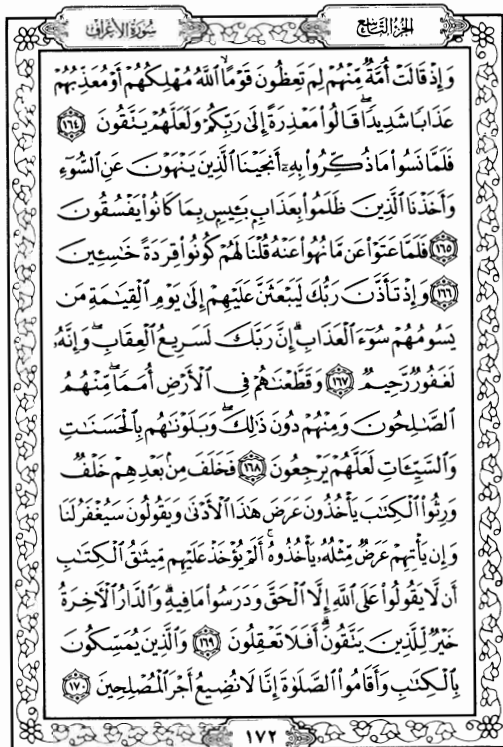 الجزء التاسع
سورة الأعراف
وَإِذْ قَالَتْ أُمَّةٌ مِّنْهُمْ لِمَ تَعِظُونَ قَوْمًا ٱللَّهُ مُهْلِكُهُمْ أَوْ مُعَذِّبُهُمْ
عَذَابًا شَدِيدًا ۖ قَالُوا۟ مَعْذِرَةً إِلَىٰ رَبِّكُمْ وَلَعَلَّهُمْ يَتَّقُونَ ١٦٤
فَلَمَّا نَسُوا۟ مَا ذُكِّرُوا۟ بِهِۦٓ أَنجَيْنَا ٱلَّذِينَ يَنْهَوْنَ عَنِ ٱلسُّوٓءِ
وَأَخَذْنَا ٱلَّذِينَ ظَلَمُوا۟ بِعَذَابٍۭ بَـِٔيسٍۭ بِمَا كَانُوا۟ يَفْسُقُونَ
١٦٥ فَلَمَّا عَتَوْا۟ عَن مَّا نُهُوا۟ عَنْهُ قُلْنَا لَهُمْ كُونُوا۟ قِرَدَةً خَٰسِـِٔينَ
١٦٦ وَإِذْ تَأَذَّنَ رَبُّكَ لَيَبْعَثَنَّ عَلَيْهِمْ إِلَىٰ يَوْمِ ٱلْقِيَٰمَةِ مَن
يَسُومُهُمْ سُوٓءَ ٱلْعَذَابِ ۗ إِنَّ رَبَّكَ لَسَرِيعُ ٱلْعِقَابِ ۖ وَإِنَّهُۥ
لَغَفُورٌ رَّحِيمٌ ١٦٧ وَقَطَّعْنَٰهُمْ فِى ٱلْأَرْضِ أُمَمًا ۖ مِّنْهُمُ
ٱلصَّٰلِحُونَ وَمِنْهُمْ دُونَ ذَٰلِكَ ۖ وَبَلَوْنَٰهُم بِٱلْحَسَنَٰتِ
وَٱلسَّيِّـَٔاتِ لَعَلَّهُمْ يَرْجِعُونَ ١٦٨ فَخَلَفَ مِنۢ بَعْدِهِمْ خَلْفٌ
وَرِثُوا۟ ٱلْكِتَٰبَ يَأْخُذُونَ عَرَضَ هَٰذَا ٱلْأَدْنَىٰ وَيَقُولُونَ سَيُغْفَرُ لَنَا
وَإِن يَأْتِهِمْ عَرَضٌ مِّثْلُهُۥ يَأْخُذُوهُ ۚ أَلَمْ يُؤْخَذْ عَلَيْهِم مِّيثَٰقُ ٱلْكِتَٰبِ
أَن لَّا يَقُولُوا۟ عَلَى ٱللَّهِ إِلَّا ٱلْحَقَّ وَدَرَسُوا۟ مَا فِيهِ ۗ وَٱلدَّارُ ٱلْءَاخِرَةُ
خَيْرٌ لِّلَّذِينَ يَتَّقُونَ ۗ أَفَلَا تَعْقِلُونَ ١٦٩ وَٱلَّذِينَ يُمَسِّكُونَ
بِٱلْكِتَٰبِ وَأَقَامُوا۟ ٱلصَّلَوٰةَ إِنَّا لَا نُضِيعُ أَجْرَ ٱلْمُصْلِحِينَ ١٧٠
١٧٢